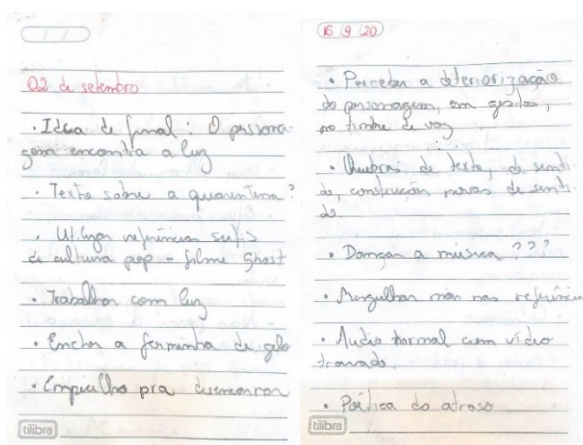 02 de setembro
• Idea de final : O persona-
gem encontra a luz
• Texto sobre a quarentena?
• Utilizar referências sutis
de cultura pop - filme Ghost
• Trabalhar com luz
• Encher a forminha de gelo
• Empecilho pra
tilibra
16 9 20
• Perceber a deteriorização
do personagem, em gestos,
no timbre de voz
• Quebras de texto, de senti-
do, construción novas de senti-
do.
• Dançar a música ???
• Mergulhar mais nas referências
• Audio normal com vídeo
travado.
• Poética do atraso
tilibra